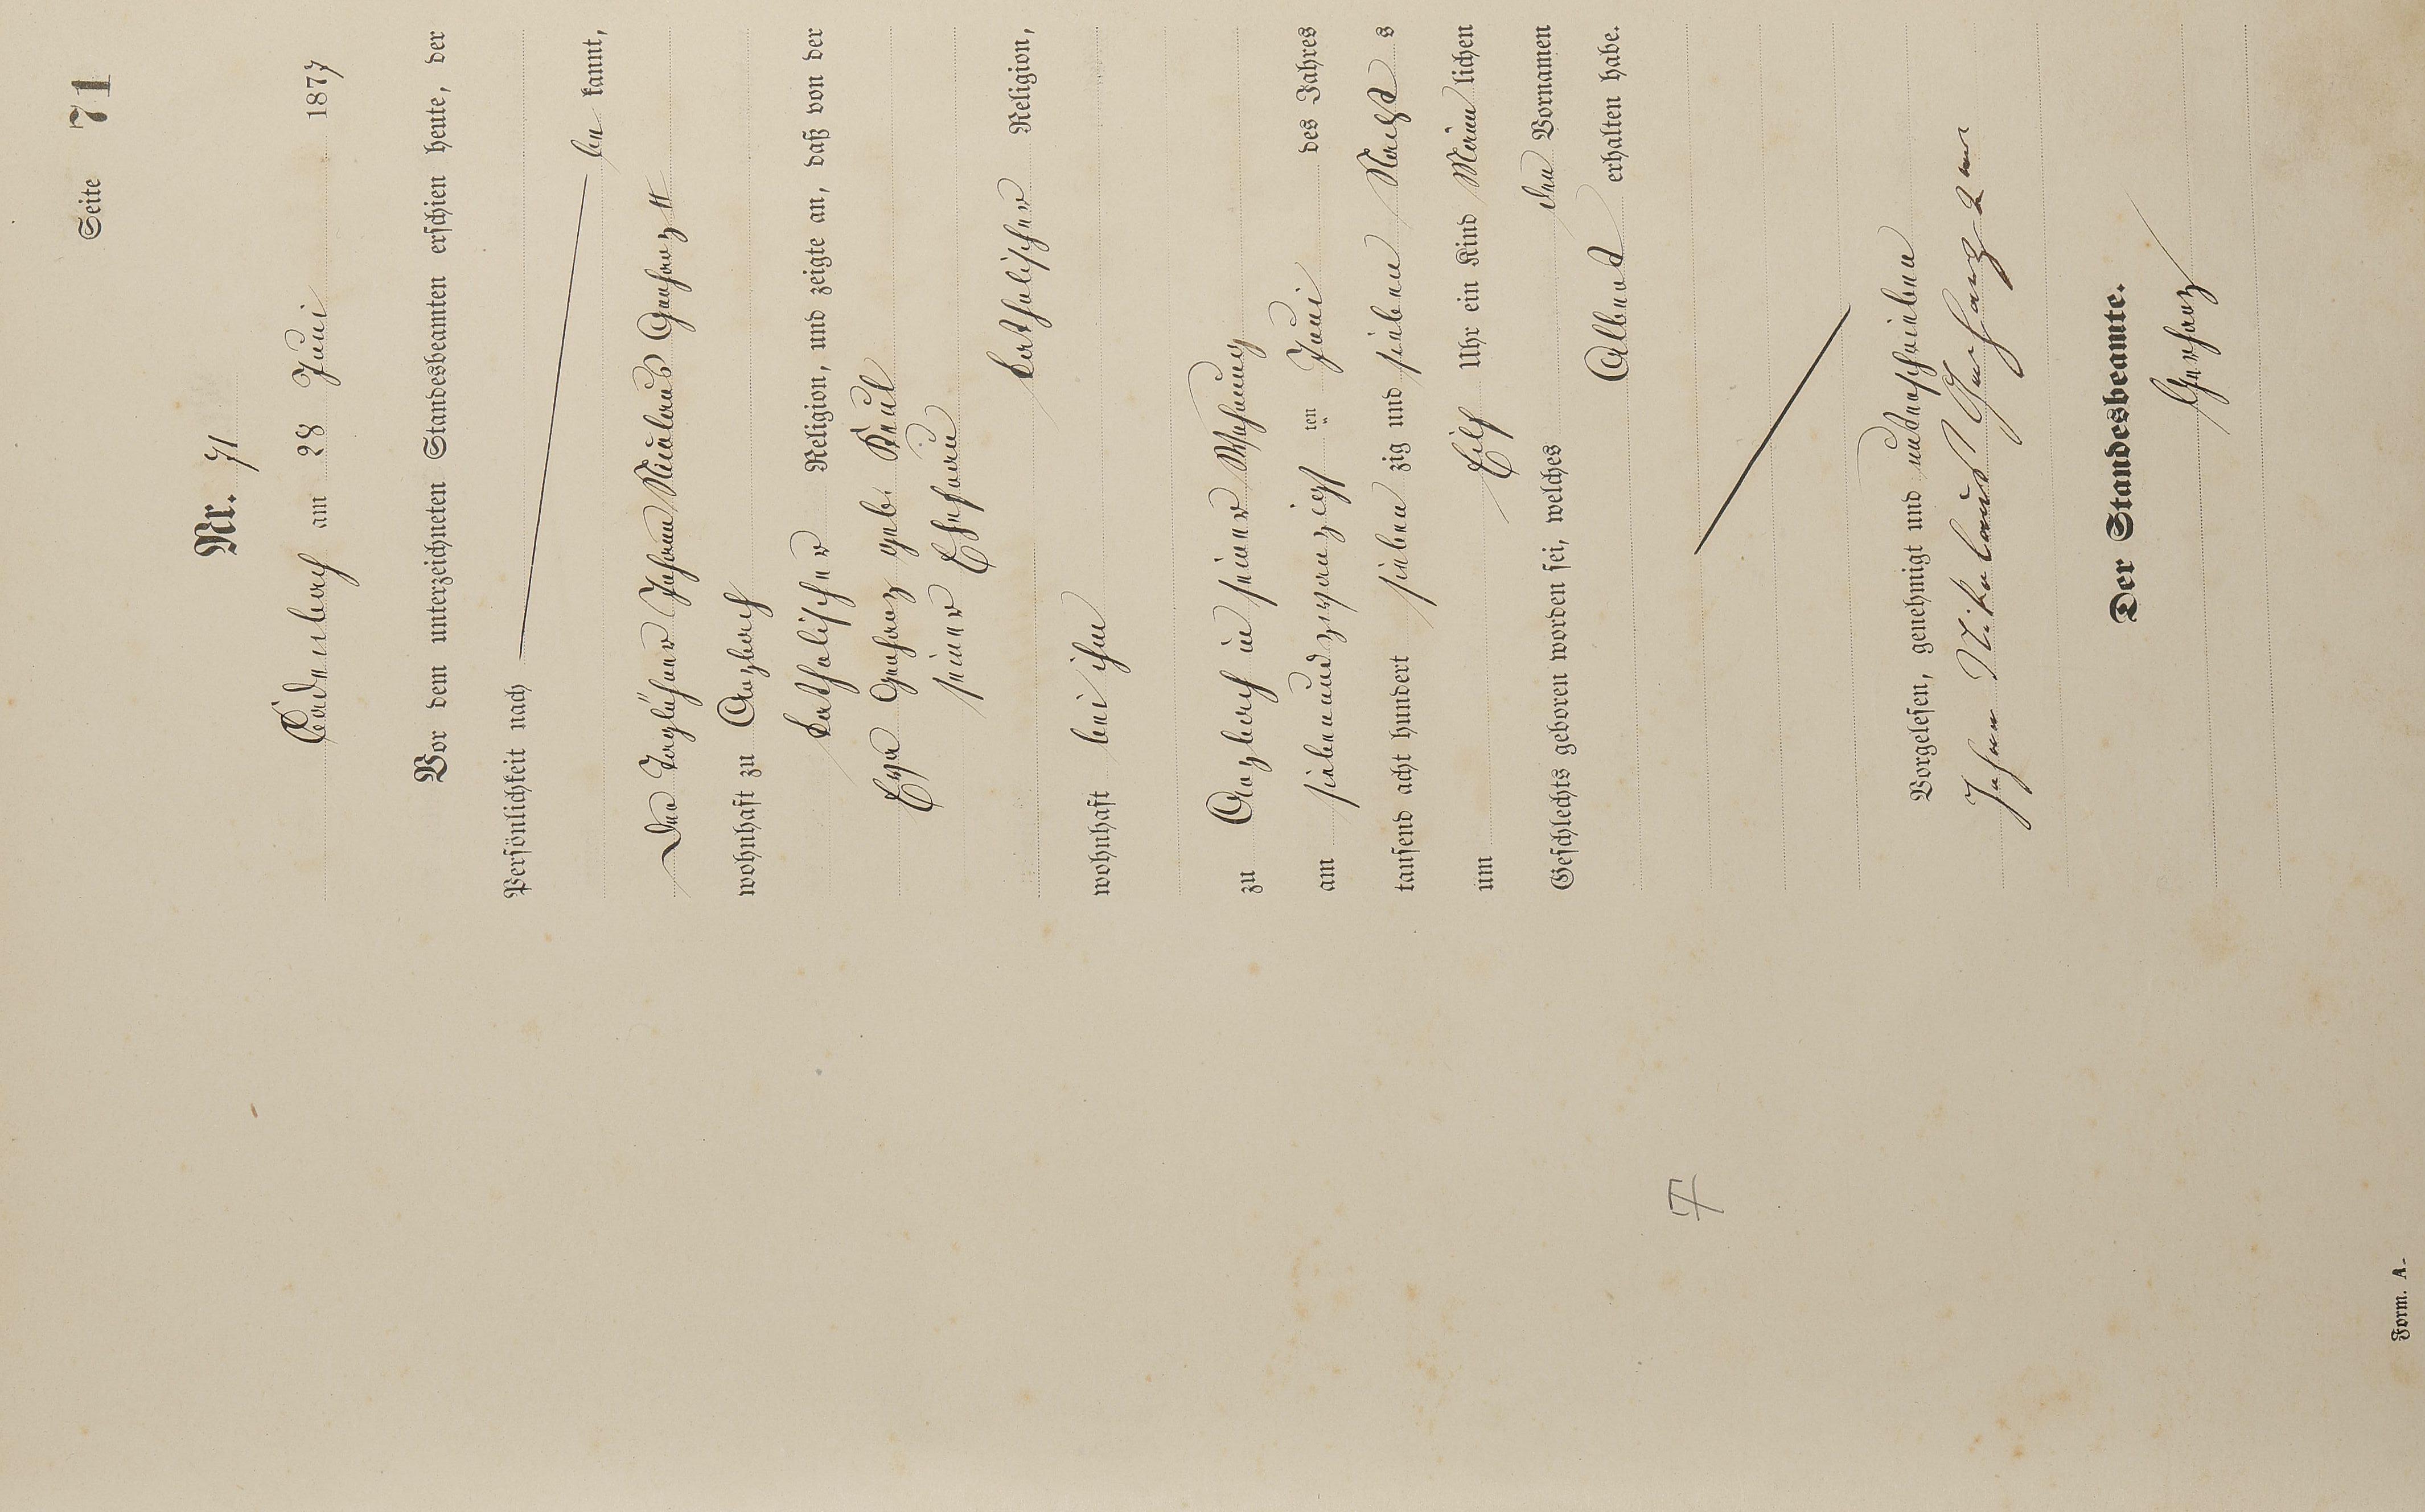 Seite 71
Nr. 71
Badenbach am 28 Juni 1877
Vor dem unterzeichneten Standesbeamten erschien heute, der
Persönlichkeit nach
be kannt,
der Taglöhner Johann Nicolaus Gerharz II
wohnhaft zu Arzbach
katholischer Religion, und zeigte an, daß von der
Eva Gerharz geb. Keul
seiner Ehefrau
katholischer Religion,
wohnhaft bei ihm
zu Arzbach in seiner Wohnung
am siebenundzwanzigs ten Juni des Jahres
tausend acht hundert sieben zig und sieben Nachts
um Eilf Uhr ein Kind Männ lichen
Geschlechts geboren worden sei, welches den Vornamen
Albert erhalten habe.
Vorgelesen, genehmigt und unterschrieben
Johann Nikolaus Gerharz 2ter
Der Standesbeamte.
Gerharz
Form. A.